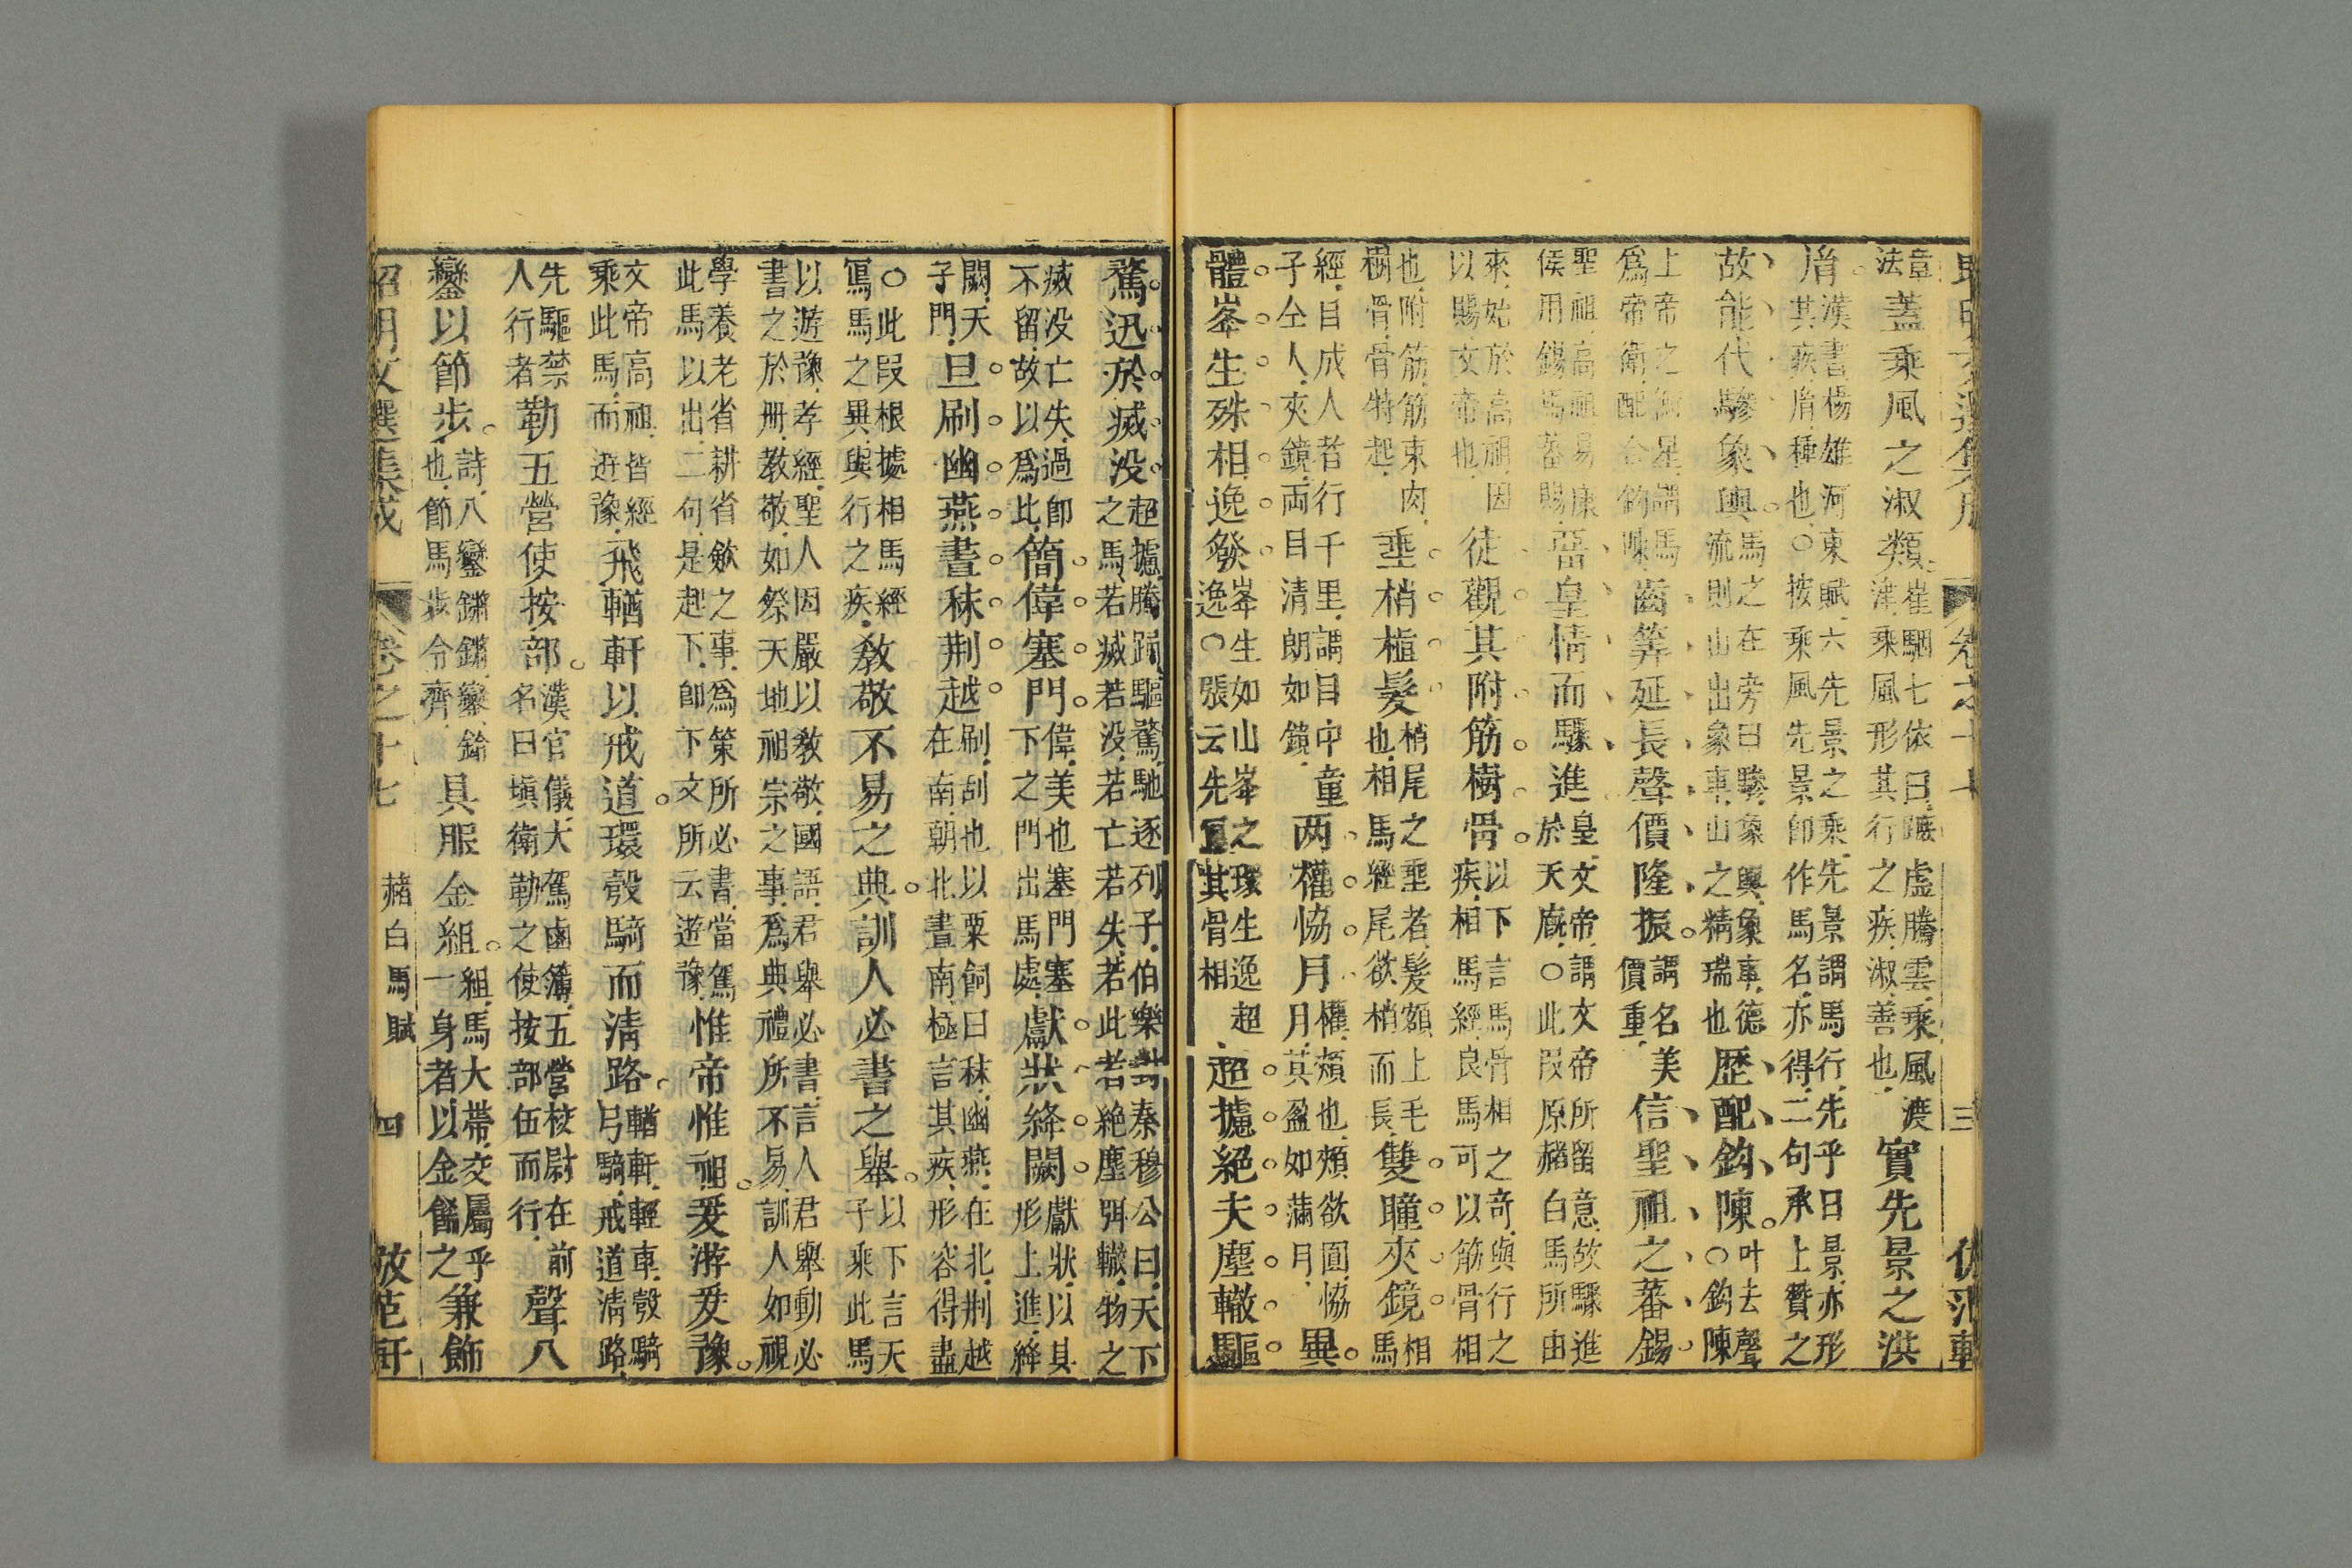 昭明文選集成 卷之十七 三 倣范軒
章蓋乘風之淑類崔駰七依曰騕虛騰雲乘風渡
法津乘風形其行之疾淑善也實先景之洪
胄漢書楊雄河東賦六先景之乘先景謂馬行先乎日景亦形
其疾胄種也○按乘風先景卽作馬名亦得二句承上贊之
故能代驂象輿馬之在旁曰驂象輿象車德
流則山出象車山之精瑞也歷配鈎陳叶去聲○鈎陳
上帝之衛星謂馬
爲帝衛配合鈎陳齒筭延長聲價隆振謂名美
價重信聖祖之蕃錫
聖祖高祖易康
侯用錫馬蕃賜畱皇情而驟進皇文帝謂文帝所留意故驟進
於天廐○此叚原赭白馬所由
來始於高祖因
以賜文帝也徒觀其附筋樹骨以下言馬骨相之奇與行之
疾相馬經良馬可以筋骨相
也附筋筋束肉
樹骨骨特起埀梢植髪梢尾之埀者髪額上毛
也相馬經尾欲梢而長雙瞳夾鏡相馬
經目成人者行千里謂目中童
子仝人夾鏡両目清朗如鏡两權協月權頰也頰欲圓協
月其盈如滿月異
體峯生殊相逸發峯生如山峯之環生逸超
逸○張云先寫其骨相超攄絕夫塵轍驅
騖迅於滅没超攄騰踴驅騖馳逐列子伯樂對秦穆公曰天下
之馬若滅若没若亡若失若此者絶塵弭轍物之
滅没亡失過卽
不留故以爲此簡偉塞門偉美也塞門塞
下之門出馬處獻狀絳闕獻狀以其
形上進絳
闕天
子門旦刷幽燕晝秣荆越刷刮也以粟飼曰秣幽燕在北荆越
在南朝北晝南極言其疾形容得盡
○此叚根據相馬經
寫馬之異與行之疾教敬不易之典訓人必書之舉以下言天
子乘此馬
以遊豫孝經聖人因嚴以教敬國語君舉必書言人君舉動必
書之於册教敬如祭天地祖宗之事爲典禮所不易訓人如視
學養老省耕省歛之事爲策所必書當駕
此馬以出二句是起下卽下文所云遊豫惟帝惟祖爰游爰豫
文帝高祖皆經
乘此馬而遊豫飛輶軒以戒道環彀騎而清路輶軒輕車彀騎
弓騎戒道清路
先驅禁
人行者勒五營使按部漢官儀大駕鹵簿五營校尉在前
名曰塡衛勒之使按部伍而行聲八
鑾以節步詩八鑾鏘鏘鑾鈴
也節馬步令齊具服金組組馬大帶交屬乎
一身者以金餙之兼飾
昭明文選集成 卷之十七 赭白馬賦 四 倣范軒